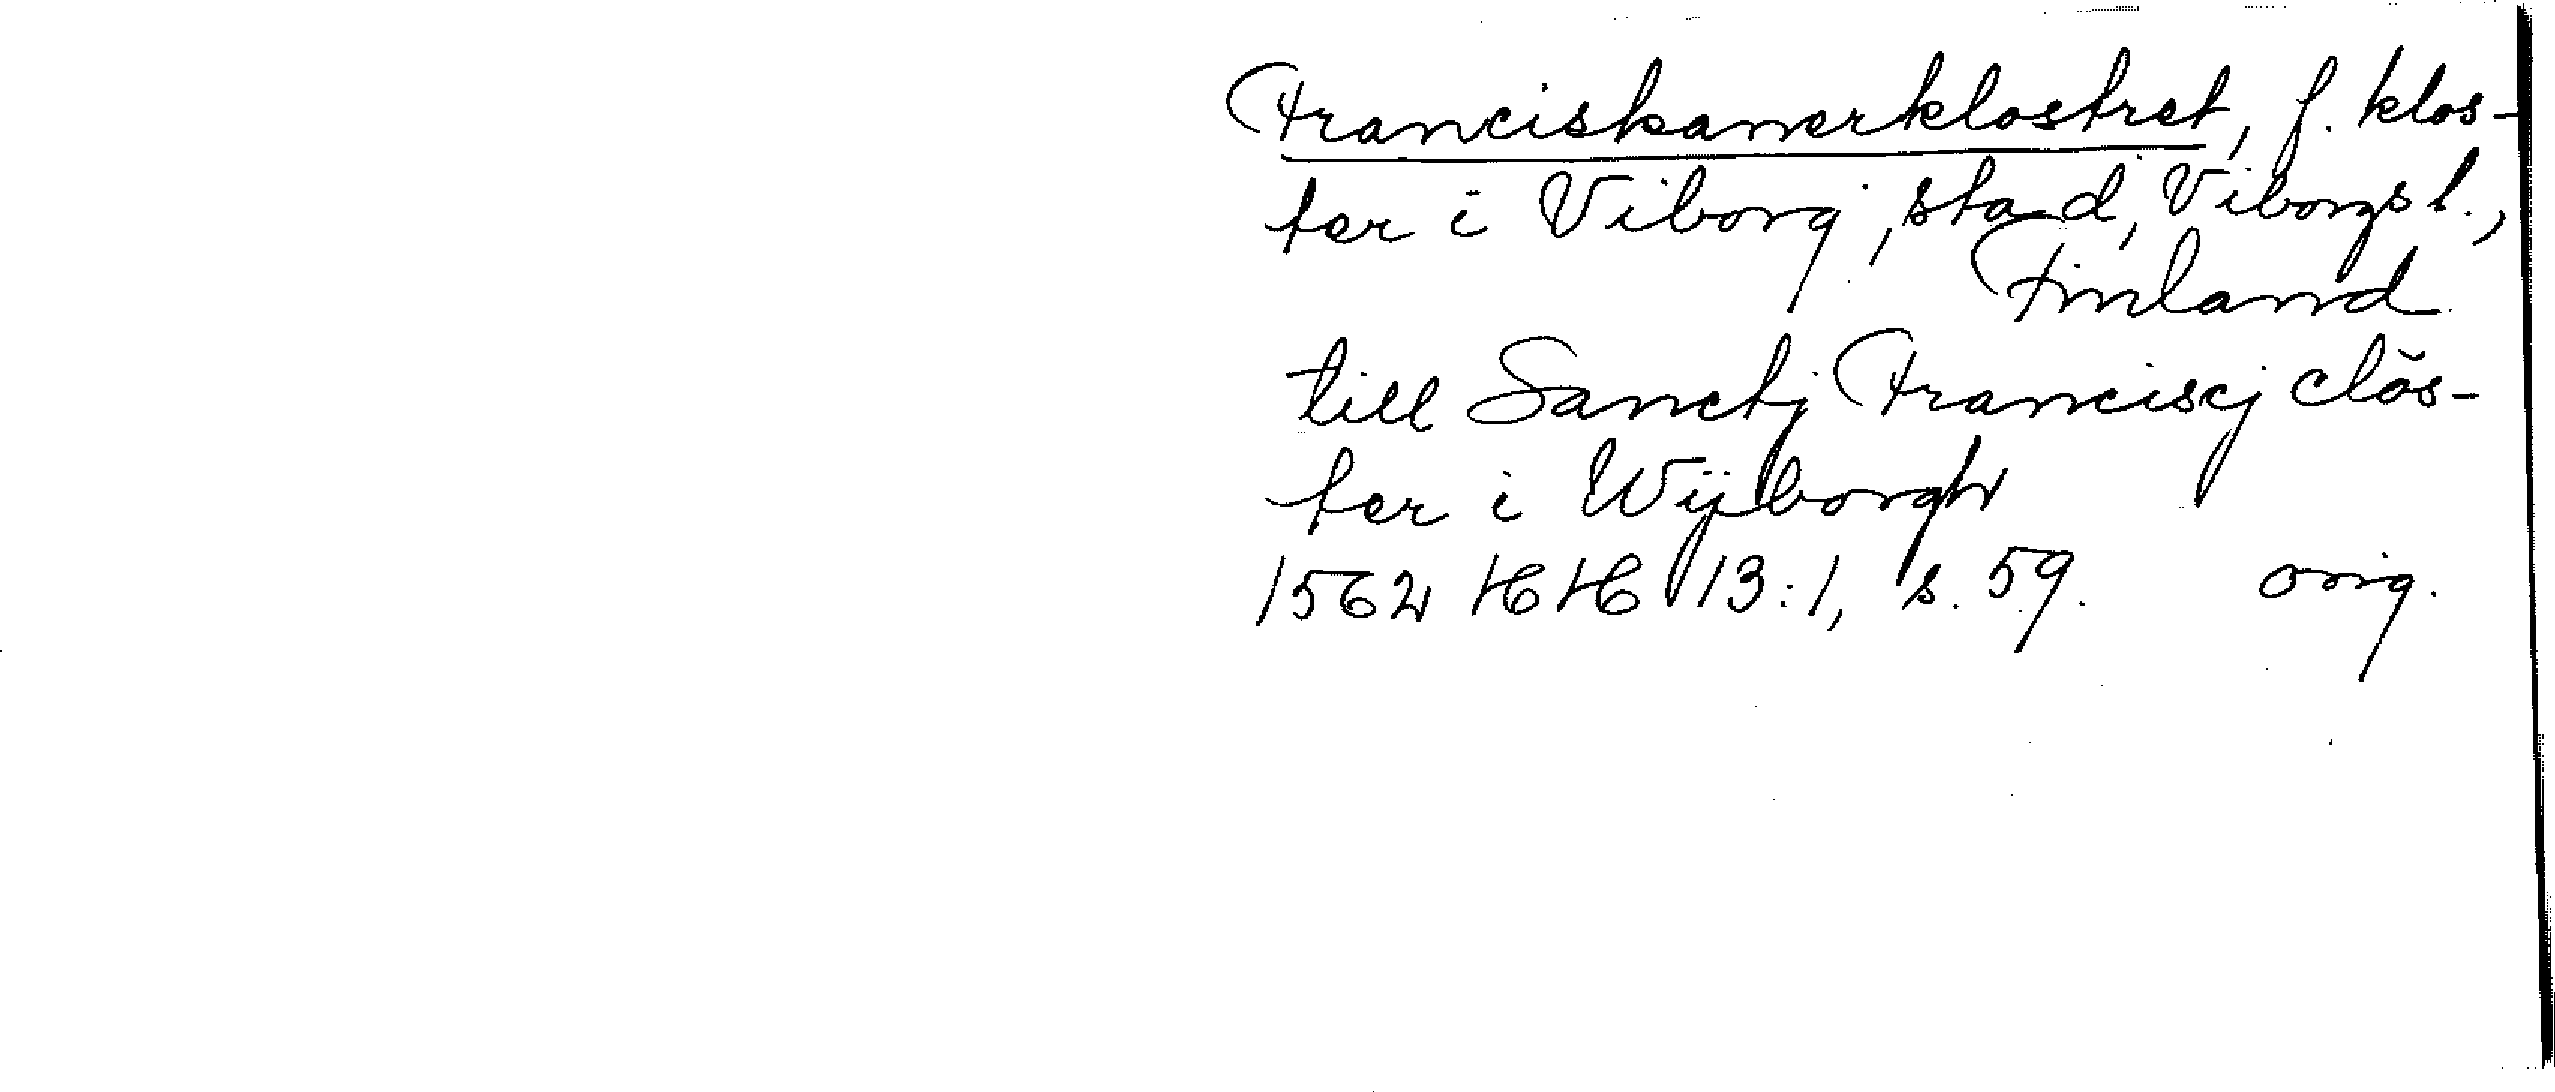 Franciskanerklostret, f. klos-
ter i Viborg, stad, Viborgs l.,
Finland
till Sanctj Franciscj clŏs-
ter i Wijborgh
1562 HH 13:1, s. 59. orig.